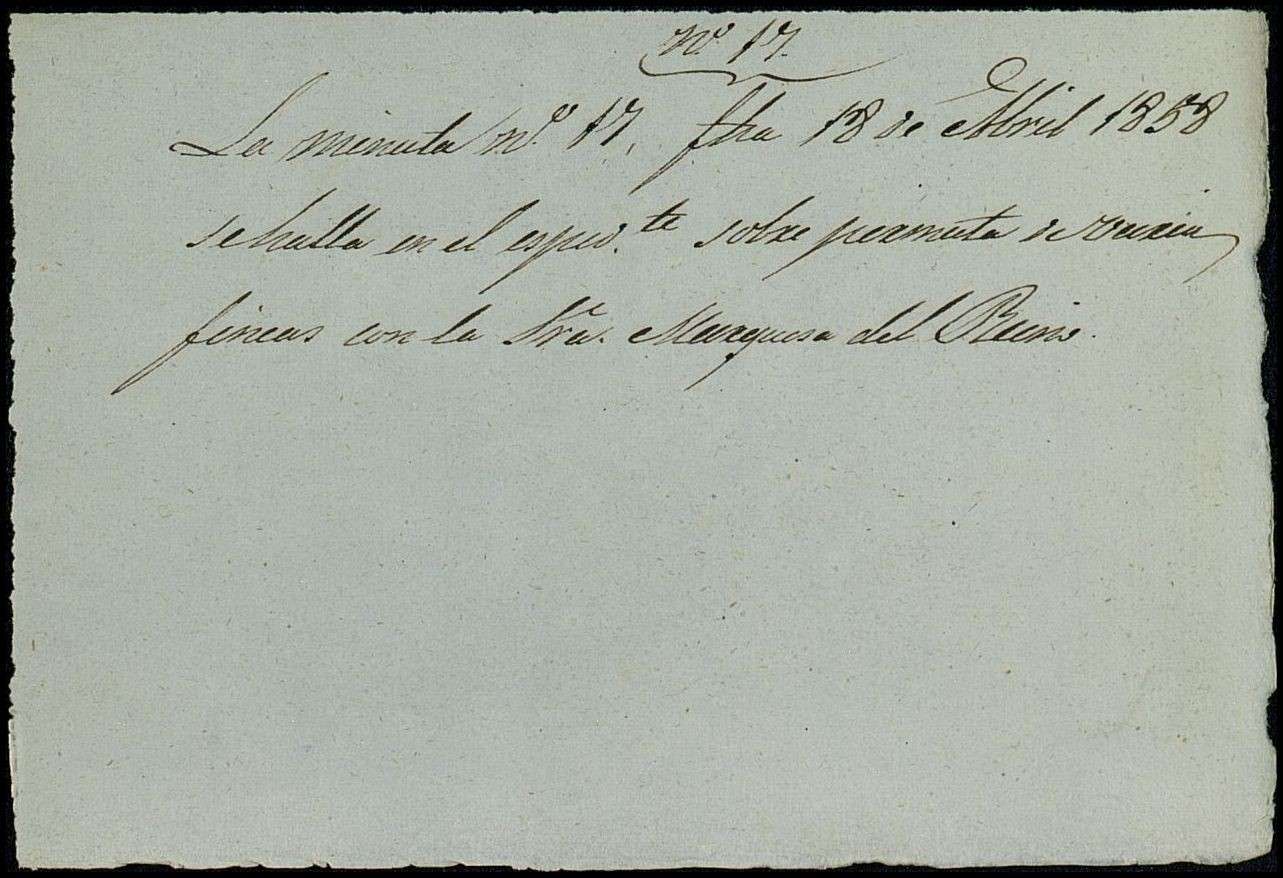 nº 17.
La minuta nº 17, fha 18 de Abril 1858
se halla en el esped.te sobre permuta de varias
fincas con la Sra. Marquesa del Reino.